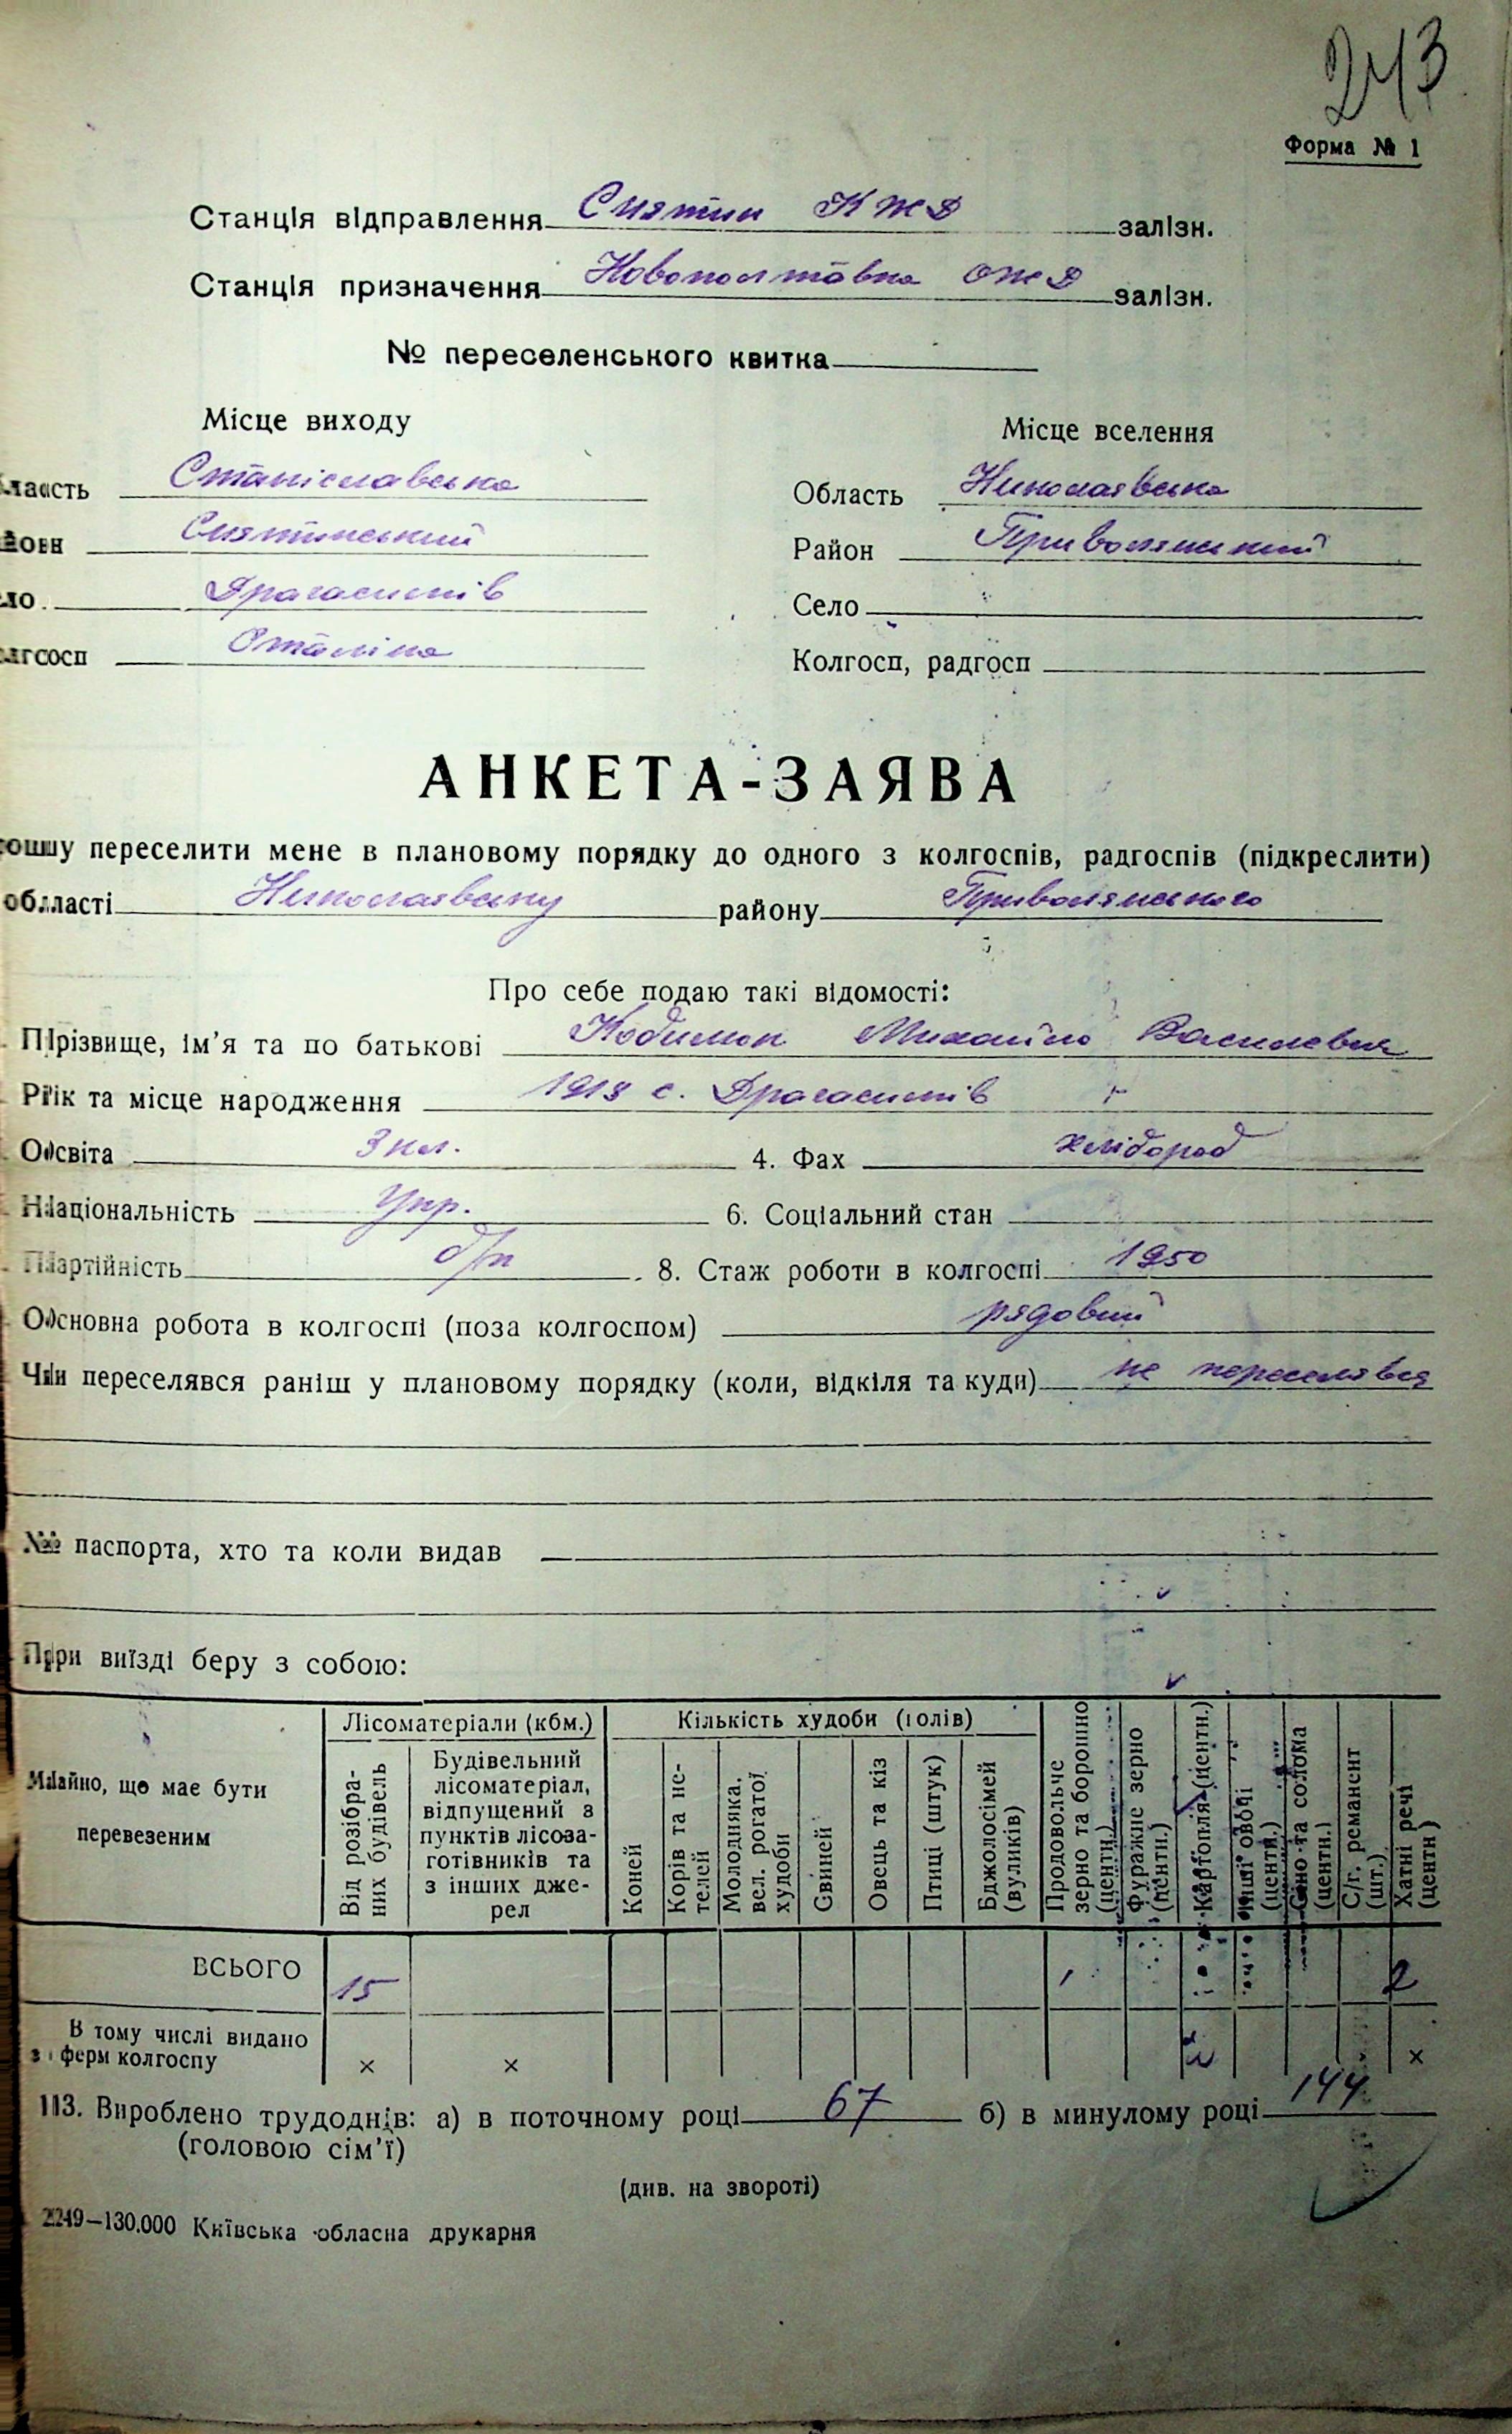 243
Форма № 1
Станція відправлення Снятин КЖД залізн.
Станція призначення Новополтавка ОЖД залізн.
№ переселенського квитка
Місце виходу Місце вселення
ласть Станіславська Область Николаявська
йон Снятинський Район Привольнянський
ло Драгасимів Село
лгосп Сталіна Колгосп, радгосп
АНКЕТА-ЗАЯВА
рошу переселити мене в плановому порядку до одного з колгоспів, радгоспів (підкреслити)
області Николаявську району Привольнянського
Про себе подаю такі відомості:
Прізвище, ім'я та по батькові Михайло Василевич
Рік та місце народження 1918 с. Драгасимів
Освіта 3 кл. 4. Фах хлібороб
Національність Укр. 6. Соціальний стан
Партійність б/п 8. Стаж роботи в колгоспі 1950
Основна робота в колгоспі (поза колгоспом) рядовий
Чи переселявся раніш у плановому порядку (коли, відкіля та куди) не переселявся
№ паспорта, хто та коли видав
При виїзді беру з собою:
Майно, що має бути перевезеним
Лісоматеріали (кбм.)
Від розібраних будівель
Будівельний
лісоматеріал,
відпущений з
пунктів лісоза-
готівників та
з інших дже-
рел
Кількість худоби (голів)
Коней
Корів та не-
телей
Молодняка,
вел. рогатої
худоби
Свиней
Овець та кіз
Птиці (штук)
Бджолосімей
(вуликів)
Продовольче
зерно та борошно
(центн.)
Фуражне зерно
(центн.)
Картопля (центн.)
Інші овочі
(центн.)
Сіно та солома
(центн.)
С/г. реманент
(шт.)
Хатні речі
(центн)
ВСЬОГО 15 2
В тому числі видано
з ферм колгоспу × × ×
13. Вироблено трудоднів: а) в поточному році 67 б) в минулому році 144
(головою сім'ї)
(див. на звороті)
2249—130.000 Київська обласна друкарня